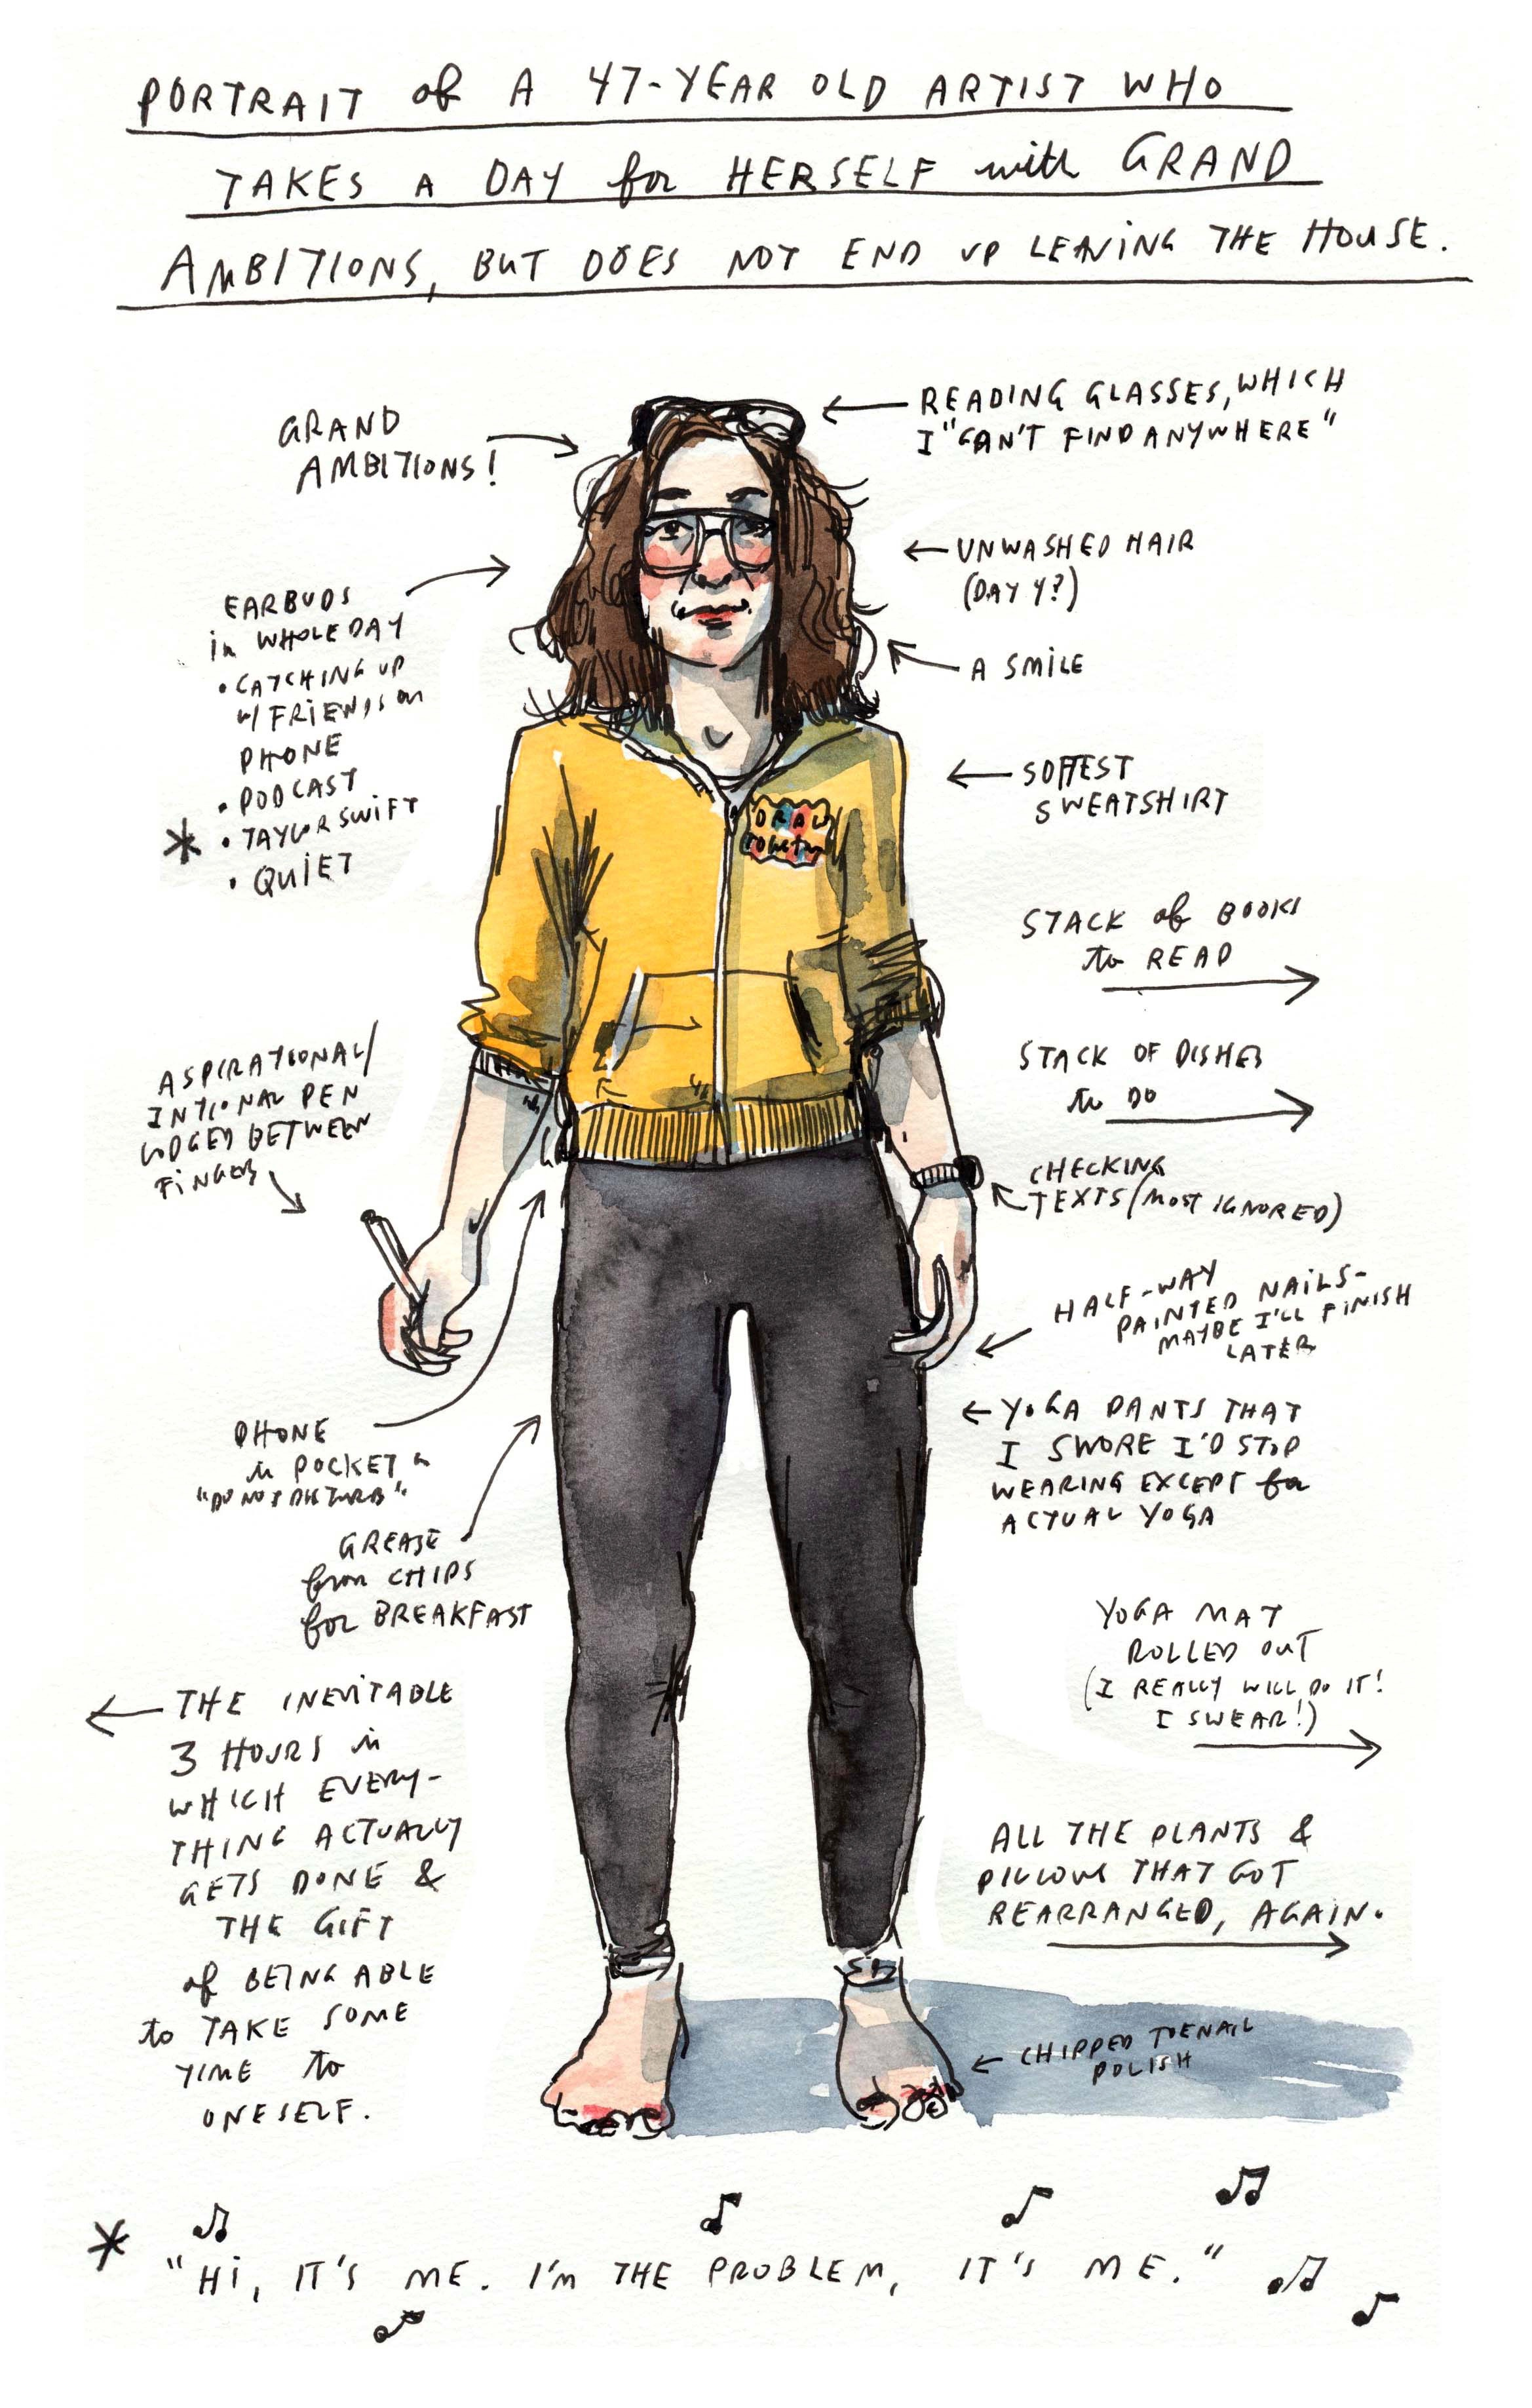 PORTRAIT of A 47-YEAR OLD ARTIST WHO
TAKES A DAY for HERSELF with GRAND
AMBITIONS, BUT DOES NOT END UP LEAVING THE HOUSE.
GRAND
AMBITIONS!
READING GLASSES, WHICH
I "CAN'T FIND ANYWHERE"
UNWASHED HAIR
(DAY 4?)
A SMILE
EARBUDS
in WHOLE DAY
• CATCHING UP
w/ FRIENDS on
PHONE
• PODCAST
* • TAYLOR SWIFT
• QUIET
SOFTEST
SWEATSHIRT
DRAW
TOGETHER
STACK of BOOKS
to READ
STACK OF DISHES
to DO
ASPIRATIONAL/
INTIONAL PEN
LODGED BETWEEN
FINGERS
CHECKING
TEXTS (MOST IGNORED)
HALF-WAY
PAINTED NAILS-
MAYBE I'LL FINISH
LATER
PHONE
in POCKET on
"DO NOT DISTURB"
YOGA PANTS THAT
I SWORE I'D STOP
WEARING EXCEPT for
ACTUAL YOGA
GREASE
from CHIPS
for BREAKFAST
YOGA MAT
ROLLED OUT
(I REALLY WILL DO IT!
I SWEAR!)
THE INEVITABLE
3 HOURS in
WHICH EVERY-
THING ACTUALLY
GETS DONE &
THE GIFT
of BEING ABLE
to TAKE SOME
TIME to
ONESELF.
ALL THE PLANTS &
PILLOWS THAT GOT
REARRANGED, AGAIN.
CHIPPED TOENAIL
POLISH
* "Hi, IT'S ME. I'm THE PROBLEM, IT'S ME."